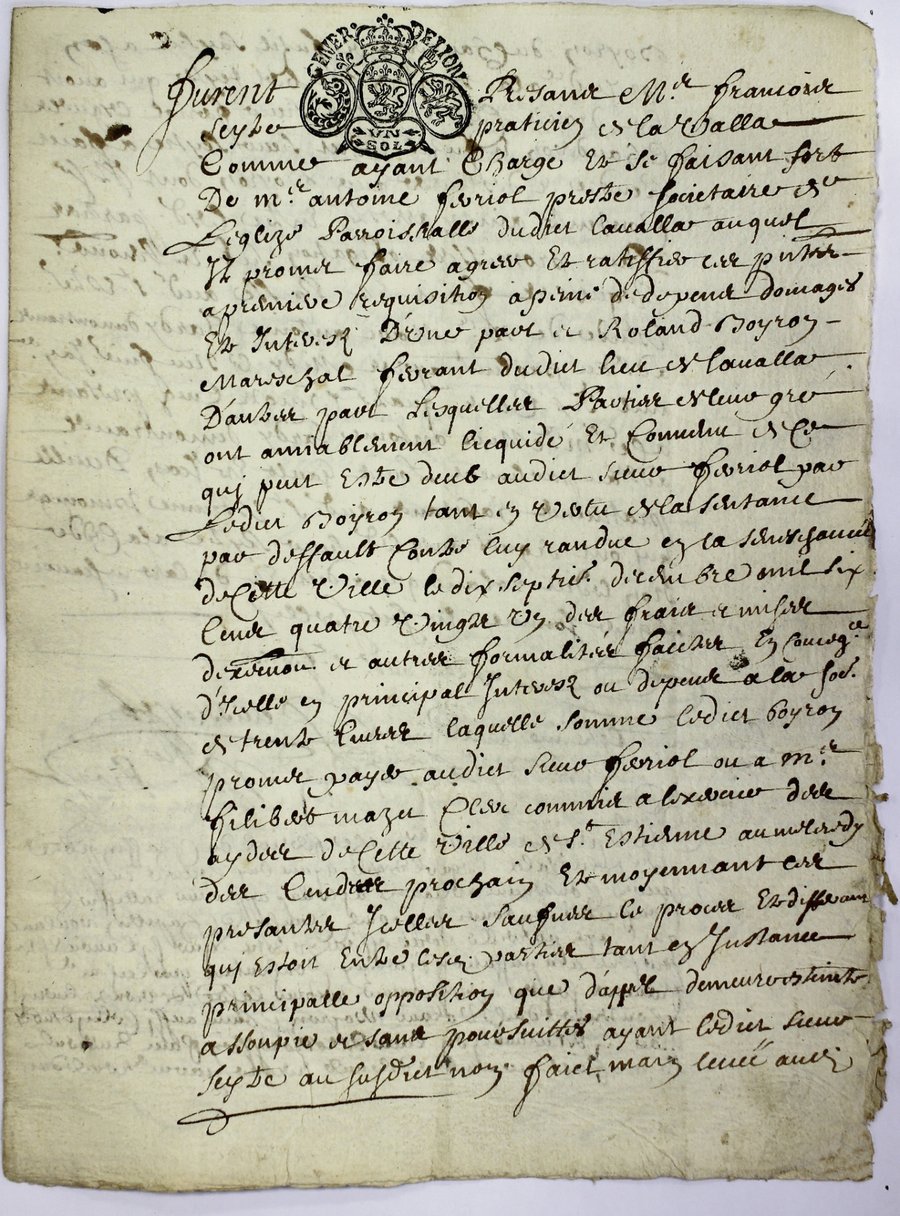 GENER. DE LION
UN
SOL
furent Presans Mr francois
Seyte praticien de la Valla
Comme ayant Charge Et se faisant fort
De mr antoine feriol prestre societaire de
L'eglize Parroischalle dudict lavalla auquel
Il promes faire agreer Et ratiffier ces pntes
a premiere requisition a peine de depens domages
Et Interestz D'une part et Roland Boyron
Mareschal ferant dudict lieu de lavalla
D'autre part Lesquelles Parties de leur gré
ont amiablement licquidé Et Convenu de Ce
quj peut Estre deub audict sieur feriol par
Ledict Boyron tant en Vertu de la sentance
par deffault Contre luy randue en la seneschaucée
de Cette Ville le dix septie. decembre mil six
Cens quatre Vingtz Un des frais et mises
et autres formalités faictes En conseq.ce
d'Icelle en principal Interestz ou depens a la so.e
de trente livres laquelle somme ledict Boyron
promes payer audict sieur feriol ou a mr
filibert mazet Clerc commis a lexercice des
aydes de Cette Ville de St Estienne au mecredy
des Cendres prochain Et moyennant ces
presantes Icelles le proces Et differant
quj Estoit Entre lesd. parties tant en Instance
principalle opposition que d'appel demeure esteinte
assoupie et sans poursuittes ayant ledict sieur
Seyte au susdict nom faict main levée avec